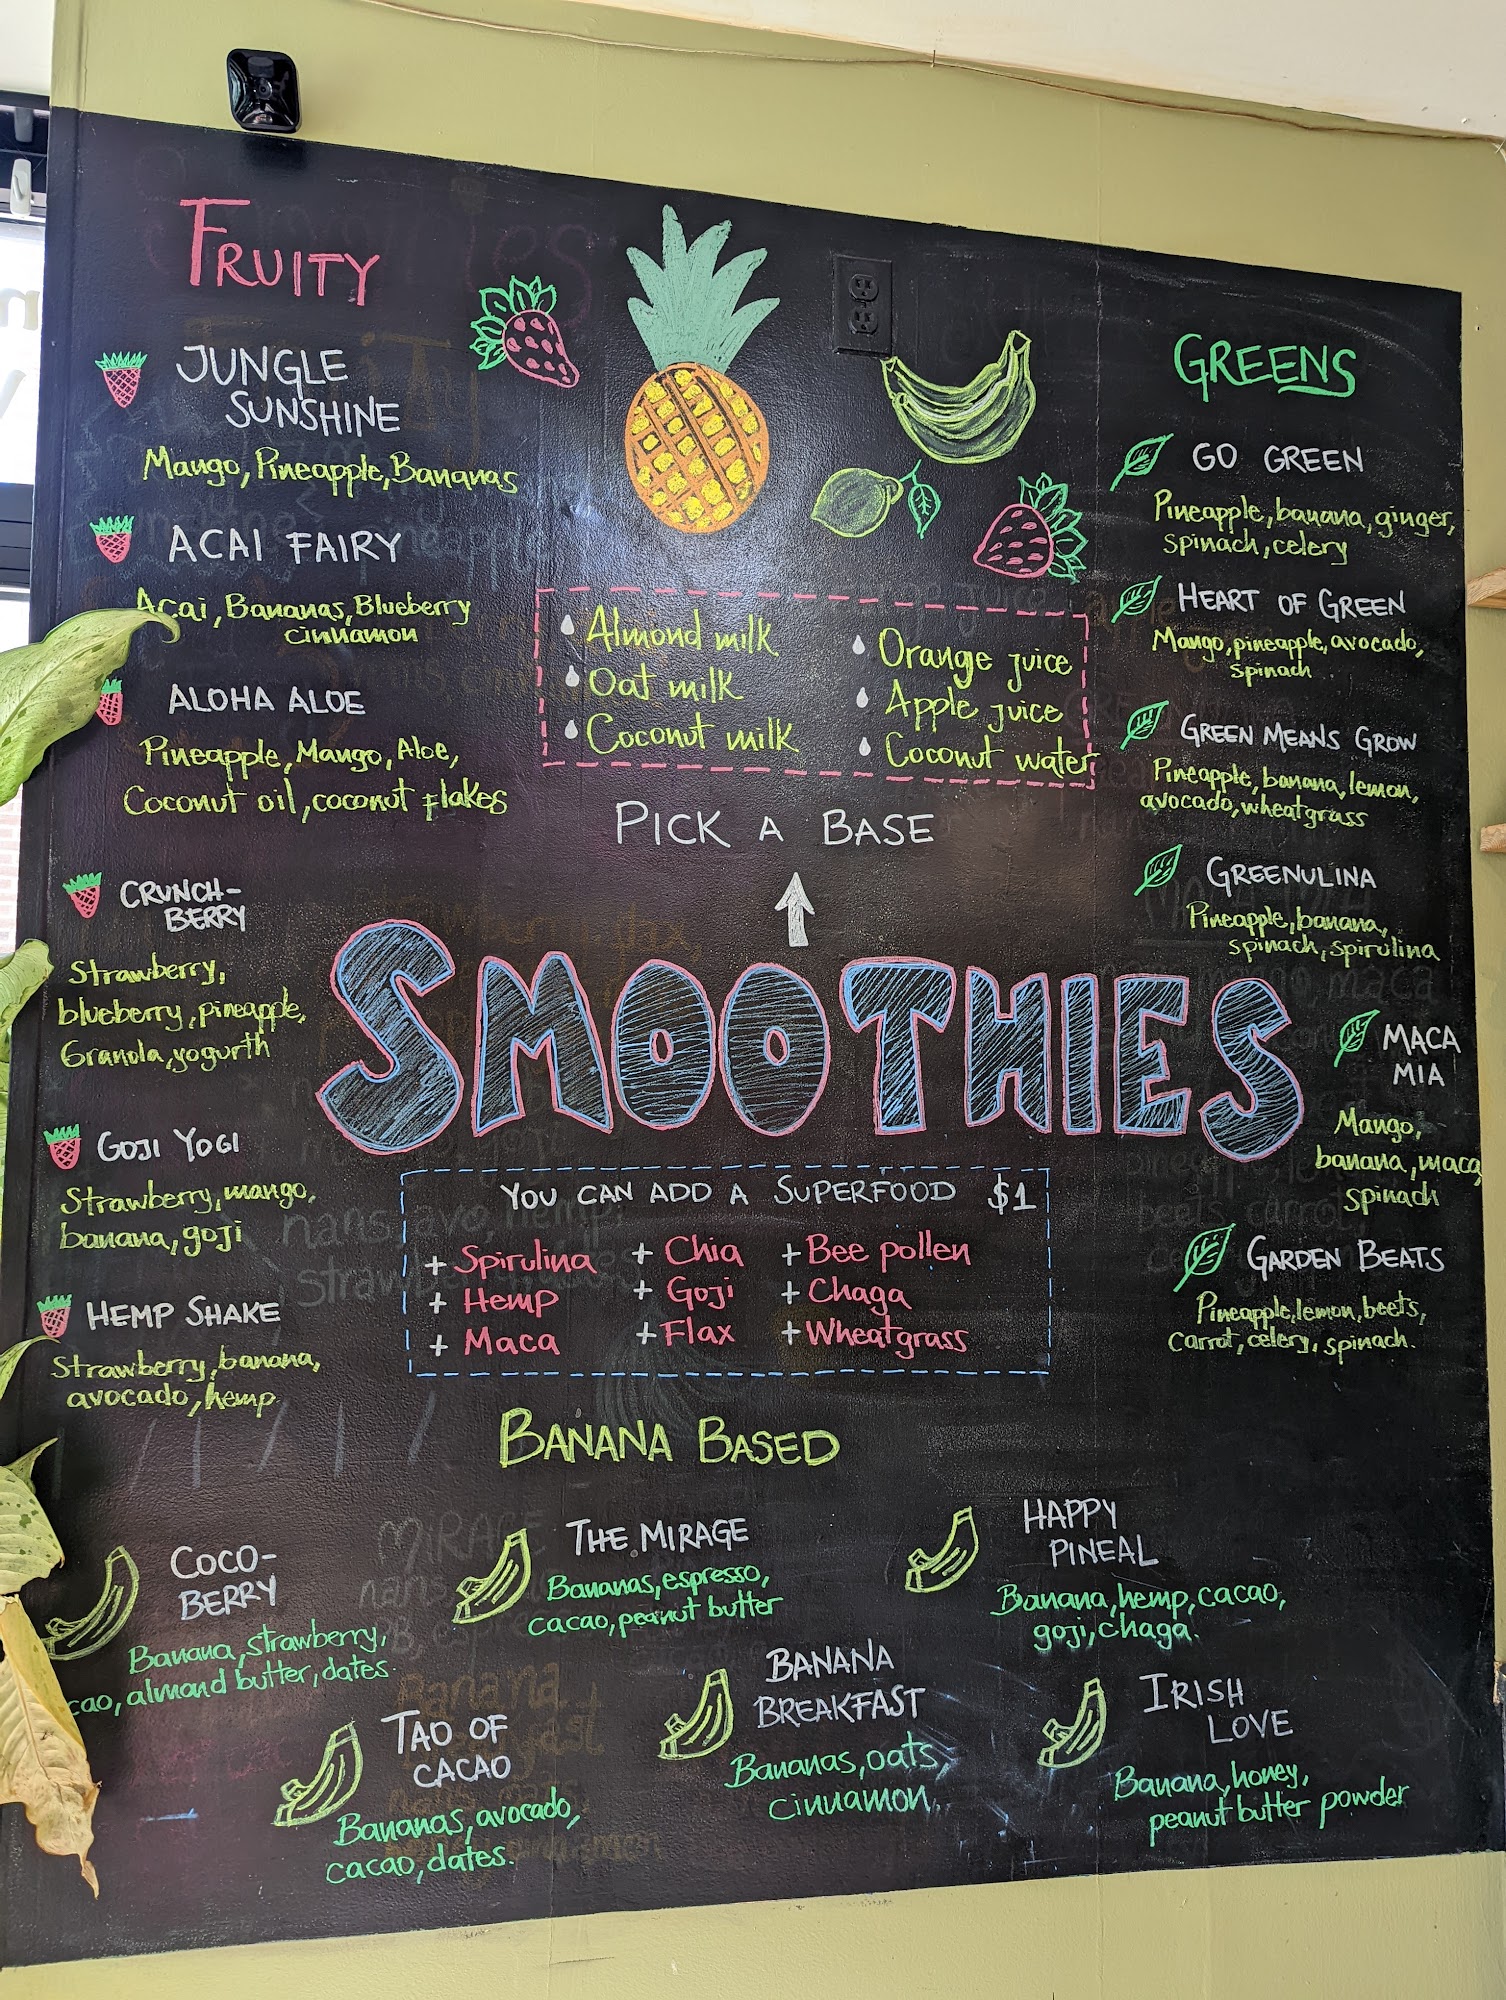 FRUITY
JUNGLE
SUNSHINE
Mango, Pineapple, Bananas
ACAI FAIRY
Acai, Bananas, Blueberry
cinnamon
ALOHA ALOE
Pineapple, Mango, Aloe,
Coconut oil, coconut flakes
CRUNCH-
BERRY
Strawberry,
blueberry, pineapple,
Granola, yogurth
GOJI YOGI
Strawberry, mango,
banana, goji
HEMP SHAKE
Strawberry, banana,
avocado, hemp
Almond milk
Oat milk
Coconut milk
Orange juice
Apple juice
Coconut water
PICK A BASE
SMOOTHIES
YOU CAN ADD A SUPERFOOD $1
+ Spirulina
+ Hemp
+ Maca
+ Chia
+ Goji
+ Flax
+ Bee pollen
+ Chaga
+ Wheatgrass
GREENS
GO GREEN
Pineapple, banana, ginger,
spinach, celery
HEART OF GREEN
Mango, pineapple, avocado,
spinach
GREEN MEANS GROW
Pineapple, banana, lemon,
avocado, wheatgrass
GREENULINA
Pineapple, banana,
spinach, spirulina
MACA
MIA
Mango,
banana, maca,
spinach
GARDEN BEATS
Pineapple, lemon, beets,
Carrot, celery, spinach.
BANANA BASED
COCO-
BERRY
Banana, strawberry,
cao, almond butter, dates.
THE MIRAGE
Bananas, espresso,
cacao, peanut butter
HAPPY
PINEAL
Banana, hemp, cacao,
goji, chaga.
TAO OF
CACAO
Bananas, avocado,
cacao, dates.
BANANA
BREAKFAST
Bananas, oats,
cinnamon,
IRISH
LOVE
Banana, honey,
peanut butter powder